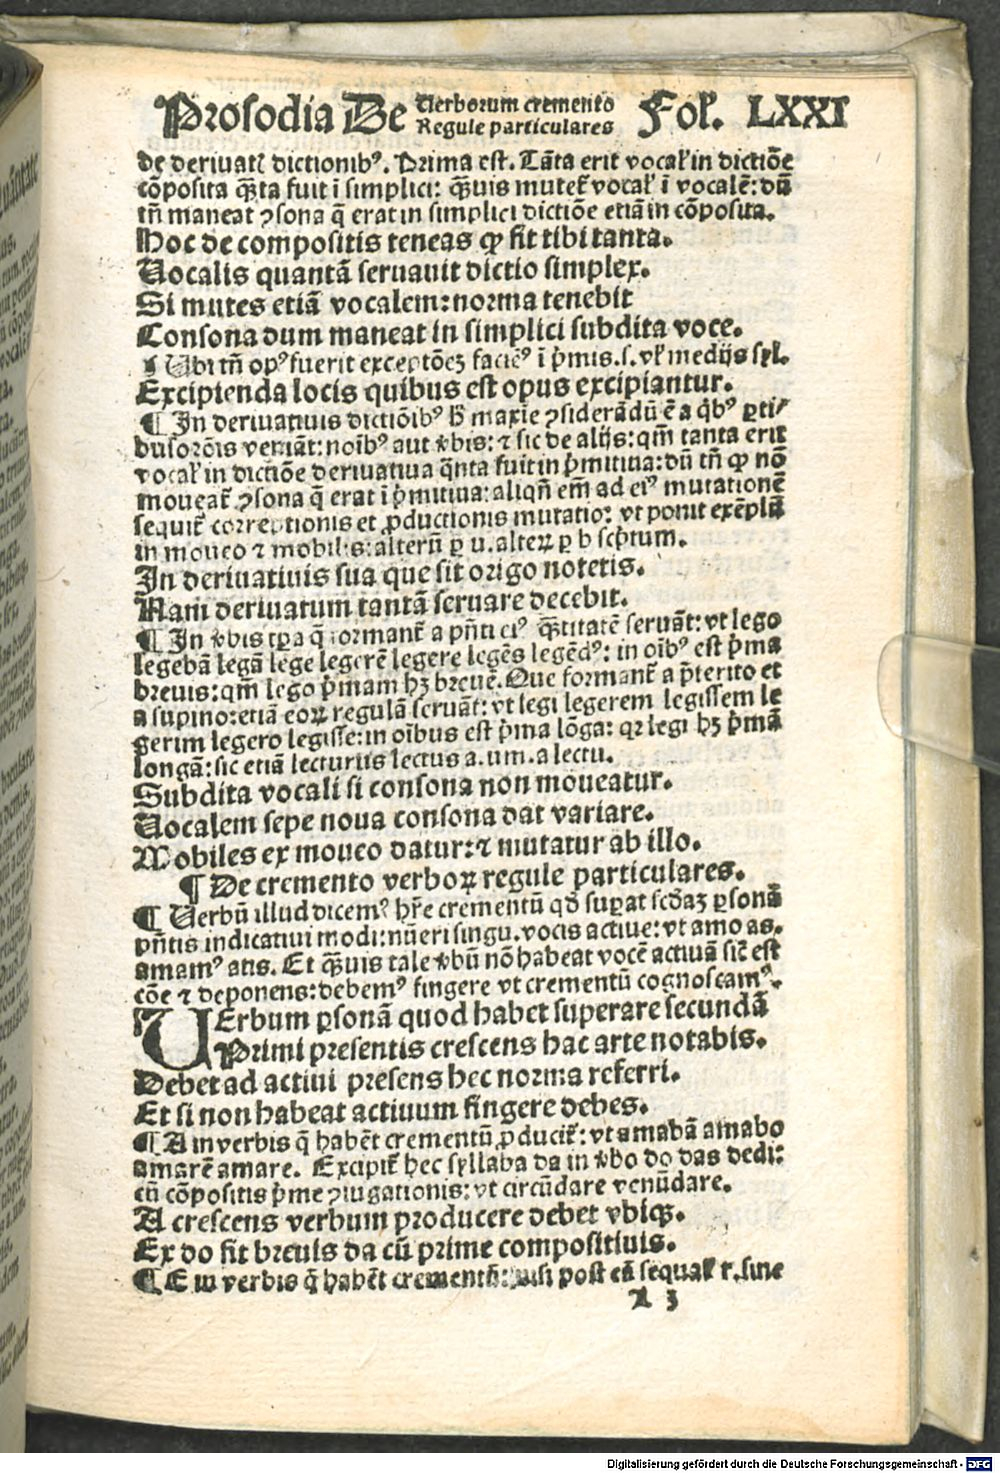 Prosodia De Uerborum cremento Regule particulares Fol. LXXI
de deriuatꝭ dictionibꝰ. Prima est. Tāta erit vocaľ in dictiōe
cōposita q̄ꝫta fuit ī simplici: q̄ꝫuis mutet᷑ vocaľ ī vocalē: dū
tn̄ maneat ꝯsona q̄ erat in simplici dictiōe etiā in cōposita.
Hoc de compositis teneas ꝙ fit tibi tanta.
Uocalis quantā seruauit dictio simplex.
Si mutes etiā vocalem: norma tenebit
Consona dum maneat in simplici subdita voce.
¶ Ubi tn̄ opꝰ fuerit exceptōeꝫ faciēꝰ ī p̄mis. s. vľ medijs syľ.
Excipienda locis quibus est opus excipiantur.
¶ In deriuatiuis dictiōibꝰ h̄ maxīe ꝯsiderādū ē a q̇bꝰ ꝑti⸗
busorōis veniāt: noībꝰ aut v̾bis: ⁊ sic de alijs: qm̄ tanta erit
vocaľ in dictiōe deriuatiua q̄nta fuit in p̄mitiua: dū tn̄ ꝙ nō
moueat᷑ ꝯsona q̄ erat ī p̄mitiua: aliqn̄ em̄ ad eiꝰ mutationē
sequit᷑ correptionis et ꝓductionis mutatio: vt ponit exēplū
in moueo ⁊ mobilis: alterū ꝑ u. alteꝝ ꝑ b scptum.
In deriuatiuis sua que sit origo notetis.
Nam deriuatum tantā seruare decebit.
¶ In v̾bis tꝑa q̄ formant᷑ a pn̄ti eiꝰ q̄ꝫtitatē seruāt: vt lego
legebā legā lege legerē legere legēs legēdꝰ: in oībꝰ est p̄ma
breuis: qm̄ lego p̄mam hꝫ breuē. Que formant᷑ a p̄terito et
a supino: etiā eoꝝ regulā seruāt: vt legi legerem legissem le
gerim legero legisse: in oībus est p̄ma lōga: qꝛ legi hꝫ p̄mā
longā: sic etiā lecturus lectus a. um. a lectu.
Subdita vocali si consona non moueatur.
Uocalem sepe noua consona dat variare.
Mobiles ex moueo datur: ⁊ mutatur ab illo.
¶ De cremento verboꝝ regule particulares.
¶ Uerbū illud dicemꝰ hr̄e crementū qď suꝑat scďaꝫ ꝑsonā
pn̄tis indicatiui modi: nūeri singu. vocis actiue: vt amo as.
amamꝰ atis. Et q̄ꝫuis tale v̾bū nō habeat vocē actiuā sic̄ est
cōe ⁊ deponens: debemꝰ fingere vt crementū cognoscamꝰ.
UErbum ꝑsonā quod habet superare secundā
Primi presentis crescens hac arte notabis.
Debet ad actiui presens hec norma referri.
Et si non habeat actiuum fingere debes.
¶ A in verbis q̄ habēt crementū ꝓducit᷑: vt amabā amabo
amarē amare. Excipit᷑ hec syllaba da in v̾bo do das dedi:
cū cōpositis p̄me ꝯiugationis: vt circūdare venūdare.
A crescens verbum producere debet vbiqꝫ.
Ex do fit breuis da cū prime compositiuis.
¶ E in verbis q̄ habēt crementū: nisi post eā sequat᷑ r. siue
A 3
Digitalisierung gefördert durch die Deutsche Forschungsgemeinschaft - DFG